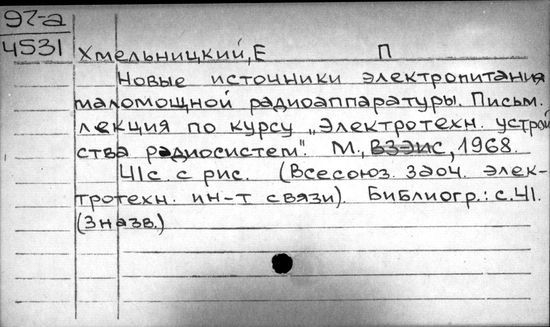 97-а
4531
Хмельницкий, Е П
Новые источники электропитания
маломощной радиоаппаратуры. Письм.
лекция по курсу „Электротехн. устрой
ства радиосистем". М., ВЗЭИС, 1968.
41с. с рис. (Всесоюз. заоч. элек-
тротехн. ин-т связи). Библиогр.: с.41.
(3 назв.)